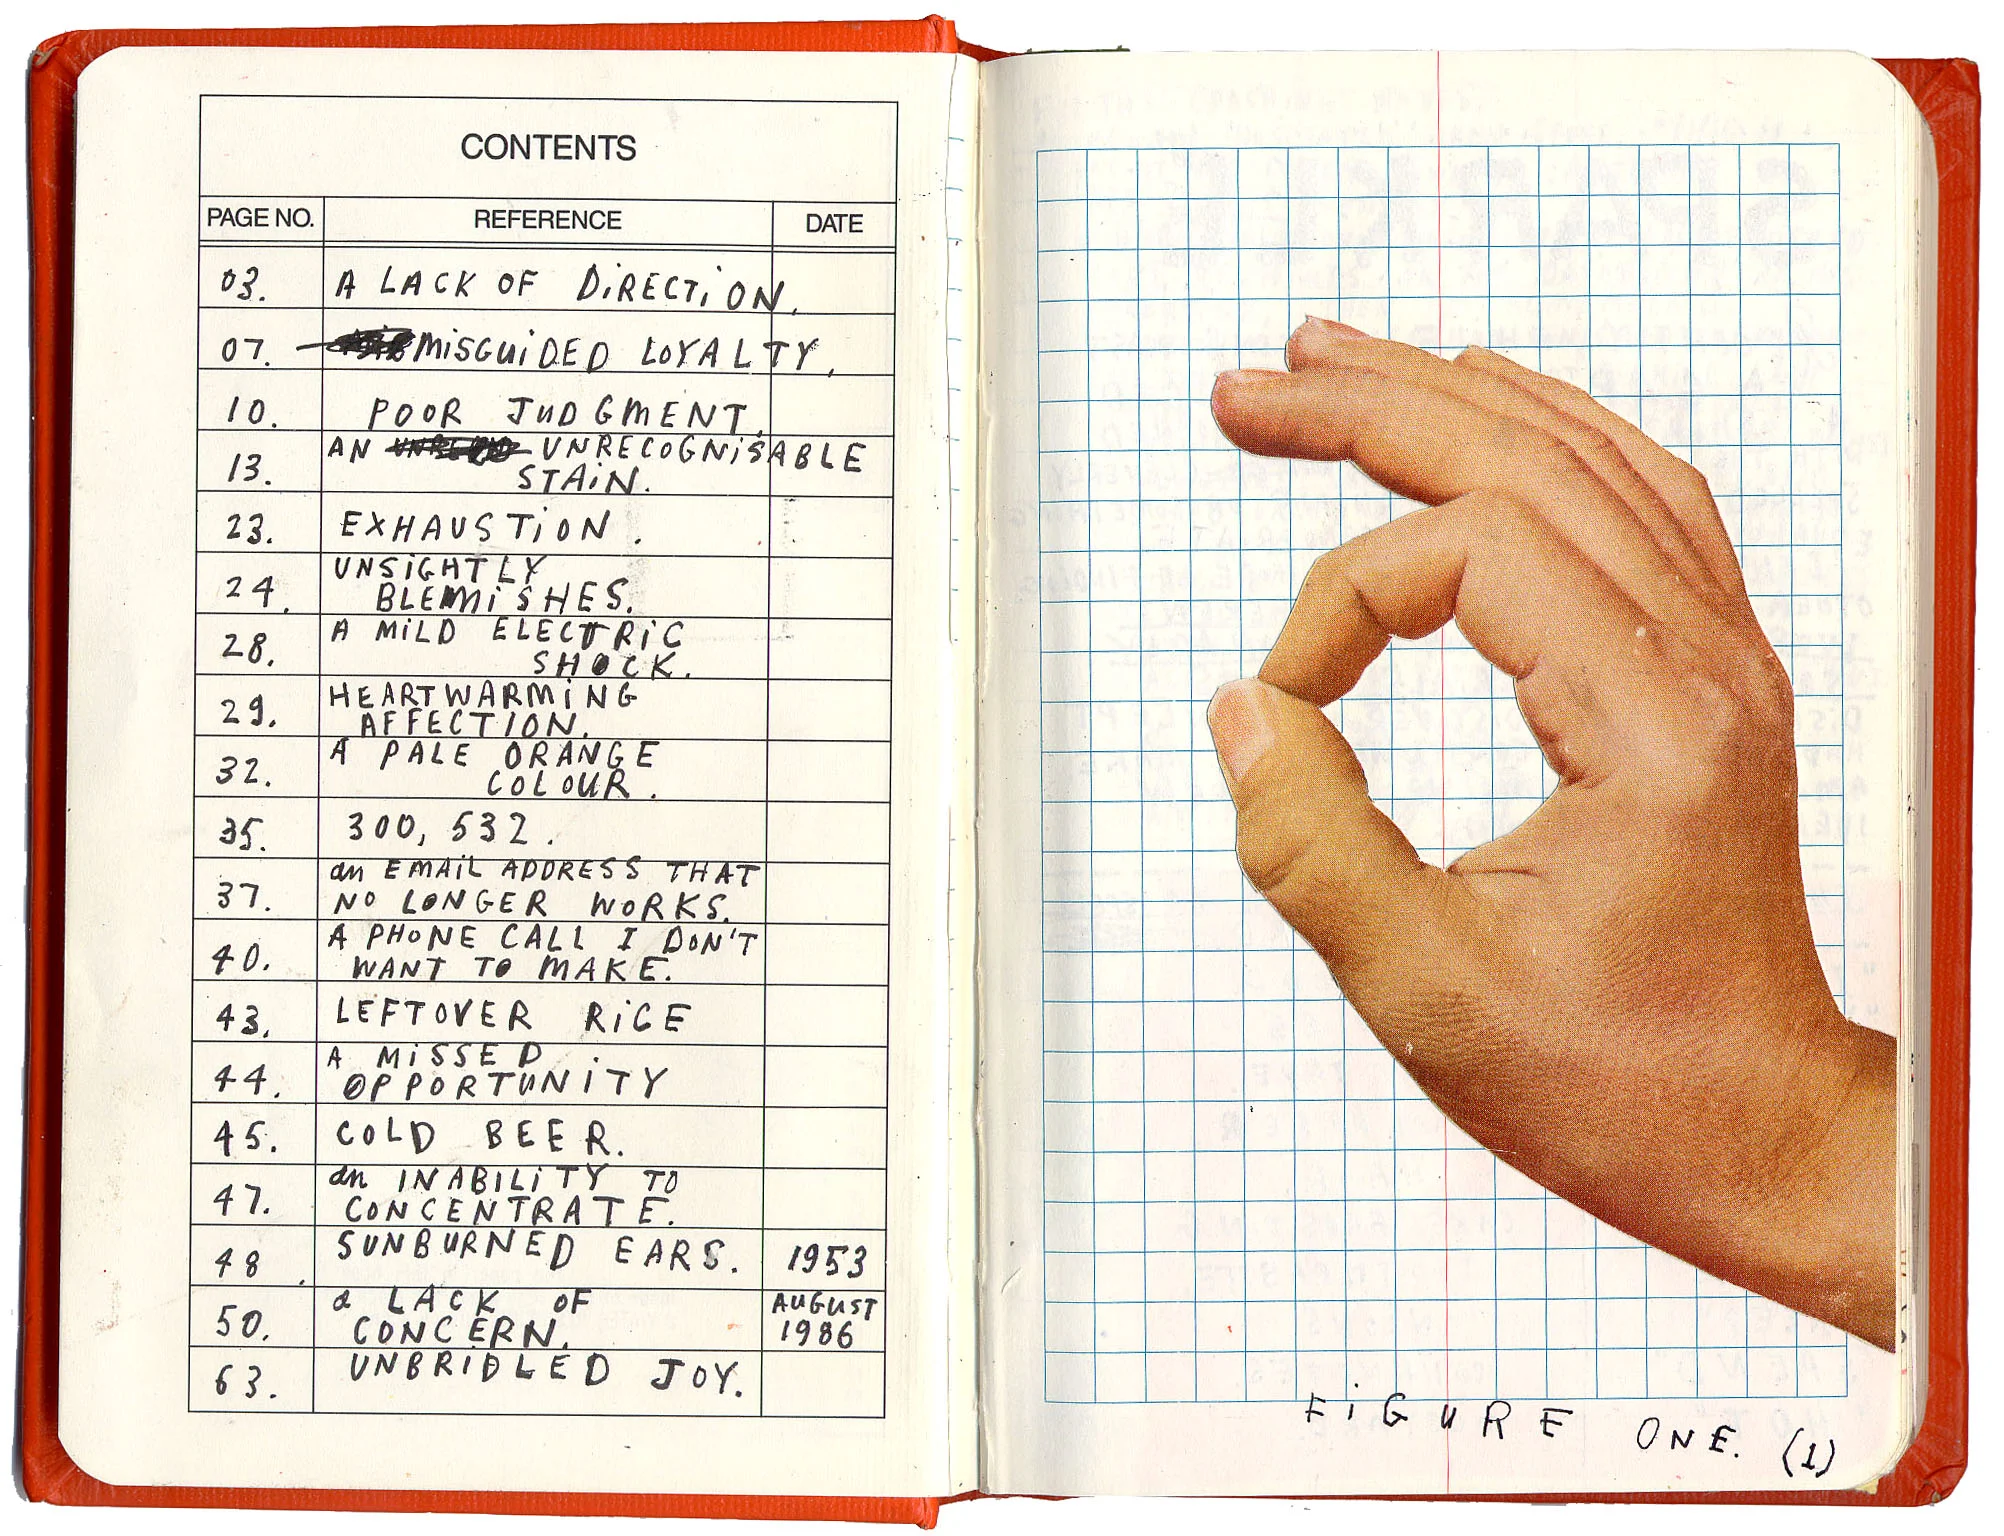 CONTENTS
PAGE NO. REFERENCE DATE
03. A LACK OF DiRECTiON.
07. MiSGUiDED LOYALTY.
10. POOR JUDGMENT.
13. AN UNRECOGNiSABLE
STAiN.
23. EXHAUSTiON.
24. UNSiGHTLY
BLEMiSHES.
28. A MiLD ELECTRiC
SHOCK.
29. HEARTWARMiNG
AFFECTION.
32. A PALE ORANGE
COLOUR.
35. 300,532.
37. an EMAiL ADDRESS THAT
NO LONGER WORKS.
40. A PHONE CALL I DON'T
WANT TO MAKE.
43. LEFTOVER RiCE
44. A MiSSED
OPPORTUNiTY
45. COLD BEER.
47. an INABiLiTY TO
CONCENTRATE.
48. SUNBURNED EARS. 1953
50. a LACK OF AUGUST
CONCERN. 1986
63. UNBRiDLED JOY.
FiGURE ONE. (1)